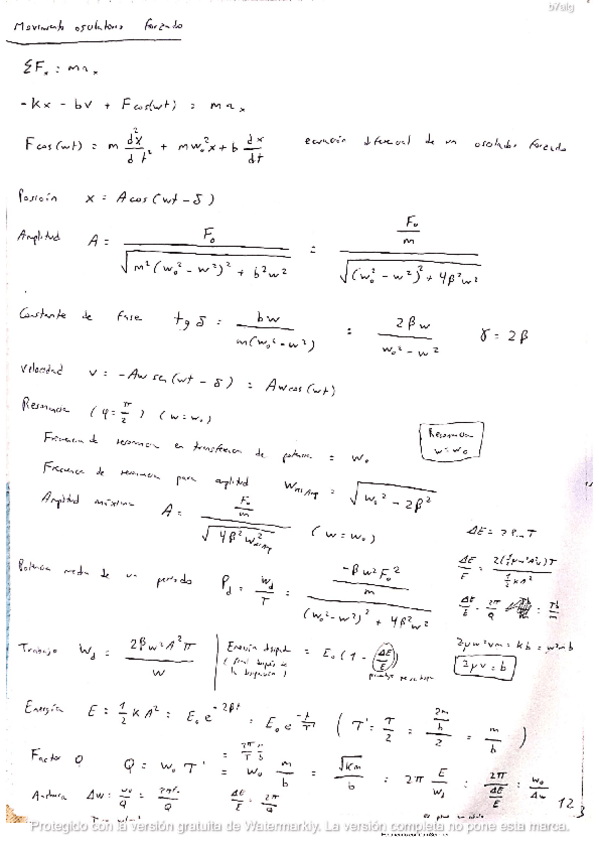 b7ulg
Movimiento oscilatorio forzado
ΣFₓ = maₓ
-kx - bv + F cos(wt) = maₓ
F cos(wt) = m d²x/dt² + mw₀²x + b dx/dt ecuación diferencial de un oscilador forzado
Posición x = A cos(wt - δ)
Amplitud A = F₀ / √(m²(w₀² - w²)² + b²w²) = (F₀/m) / √((w₀² - w²)² + 4β²w²)
Constante de fase tg δ = bw / m(w₀² - w²) = 2βw / (w₀² - w²) γ = 2β
Velocidad v = -Aw sen(wt - δ) = Aw cos(wt)
Resonancia (φ = π/2) (w = w₀)
Resonancia w = w₀
Frecuencia de resonancia en transferencia de potencia = w₀
Frecuencia de resonancia para amplitud = √(w₀² - 2β²)
Amplitud máxima A = (F₀/m) / √(4β²w²) (w = w₀)
Potencia media de un periodo P_d = W_d/T = (-βw²F₀²/m) / ((w₀² - w²)² + 4β²w²)
ΔE/E = 2π/Q
Trabajo W_d = 2βw²A²π / w
Energía = E₀(1 - ΔE/E)
2μv = b
Energía E = 1/2 kA² = E₀e^(-2βt) = E₀e^(-t/T') (T' = T/2 = (2m/b)/2 = m/b)
Factor Q Q = w₀T' = w₀ m/b = √(km)/b = 2π E/W_d = 2π/(ΔE/E) = w₀/Δw
Anchura Δw = ΔE/E = 2π/Q
12
3
Protegido con la versión gratuita de Watermarkly. La versión completa no pone esta marca.